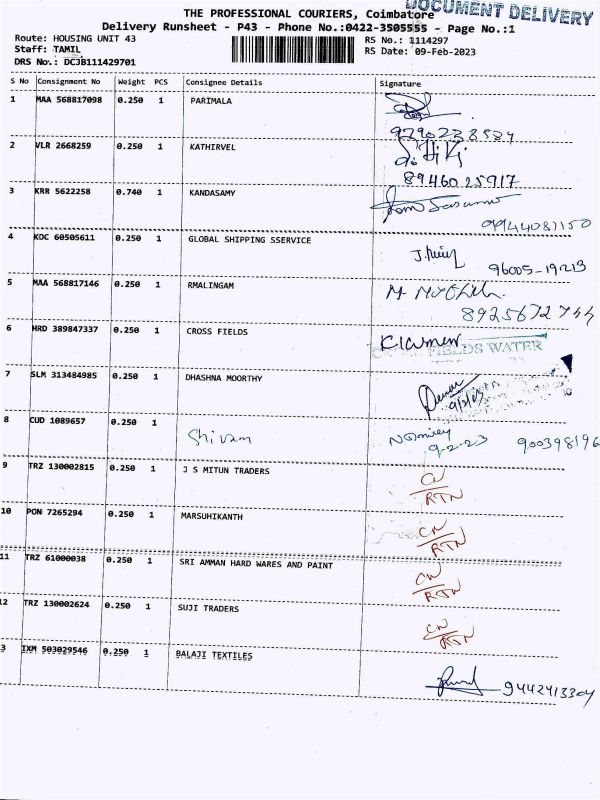 THE PROFESSIONAL COURIERS, Coimbatore
DOCUMENT DELIVERY
Delivery Runsheet - P43 - Phone No.:0422-3505555 - Page No.:1
Route: HOUSING UNIT 43 RS No.: 1114297
Staff: TAMIL RS Date: 09-Feb-2023
DRS No.: DCJB111429701
S No Consignment No Weight PCS Consignee Details Signature
1 MAA 568817098 0.250 1 PARIMALA
2 VLR 2668259 0.250 1 KATHIRVEL
8946025917
3 KRR 5622258 0.740 1 KANDASAMY
9944081150
4 KOC 60505611 0.250 1 GLOBAL SHIPPING SSERVICE
96005-19213
5 MAA 568817146 0.250 1 RMALINGAM
8925672744
6 HRD 389847337 0.250 1 CROSS FIELDS
FIELDS WATER
7 SLM 313484985 0.250 1 DHASHNA MOORTHY
8 CUD 1089657 0.250 1 Shivam
9-2-23 900398196
9 TRZ 130002815 0.250 1 J S MITUN TRADERS CN/RTN
10 PON 7265294 0.250 1 MARSUHIKANTH CN/RTN
11 TRZ 61000038 0.250 1 SRI AMMAN HARD WARES AND PAINT CN/RTN
12 TRZ 130002624 0.250 1 SUJI TRADERS CN/RTN
3 IXM 503029546 0.250 1 BALAJI TEXTILES
9442413304